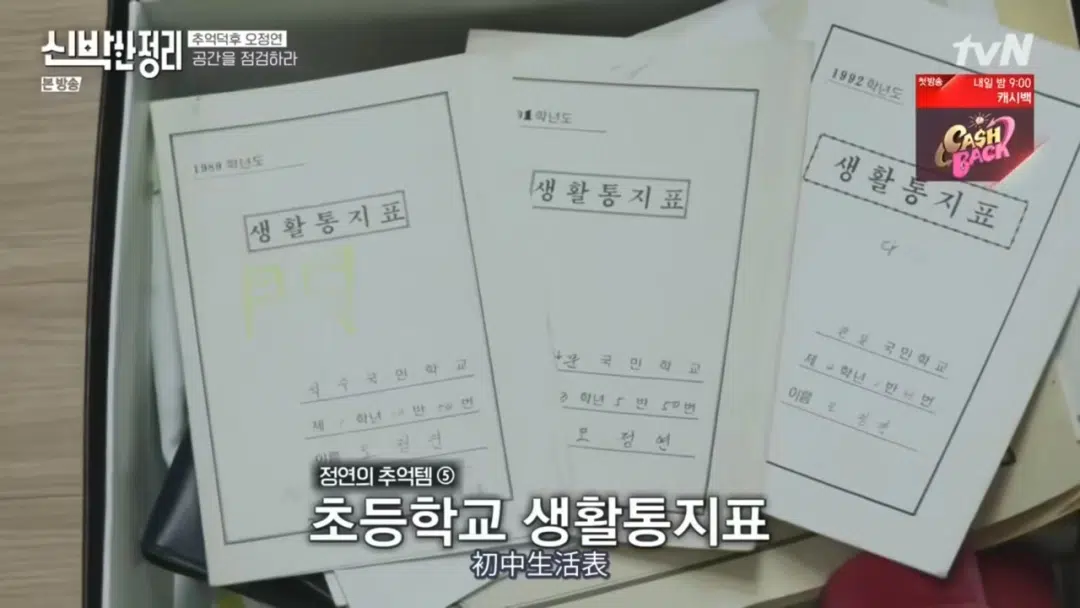 신박한정리
추억덕후 오정연
공간을 점검하라
본 방송
tvN
첫방송
내일 밤 9:00
캐시백
CASH
BACK
1989 학년도
생활통지표
국민학교
제 학년 반 번
이름 오정연
91 학년도
생활통지표
국민학교
3 학년 5 반 50번
오정연
1992 학년도
생활통지표
다
국민학교
제 학년 반 번
이름 오정연
정연의 추억템 ⑤
초등학교 생활통지표
初中生活表